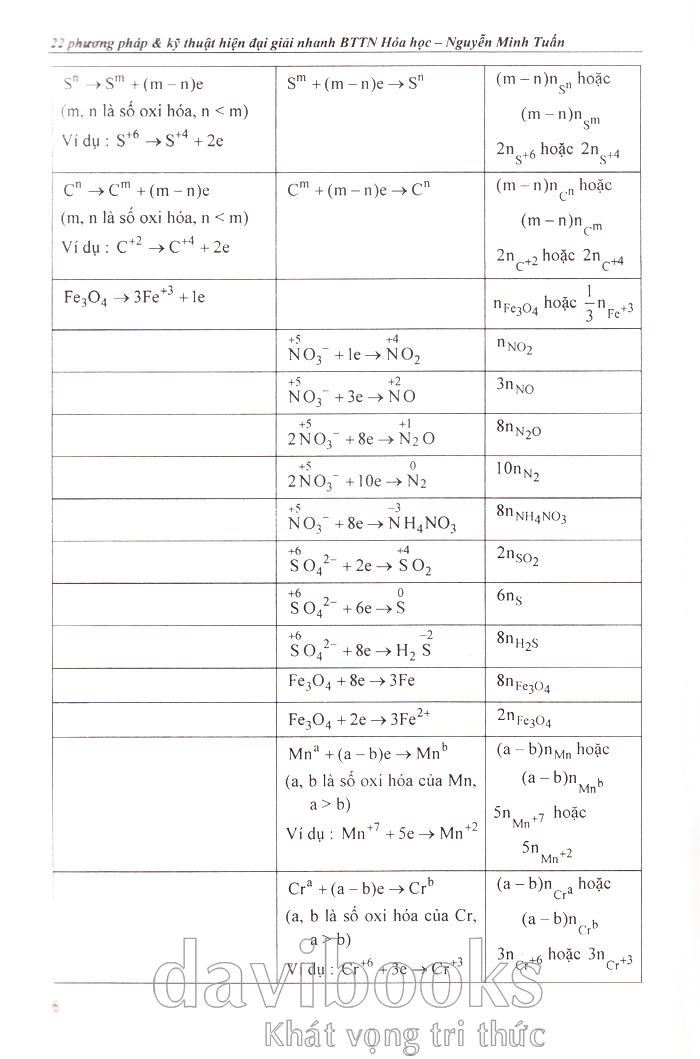 22 phương pháp & kỹ thuật hiện đại giải nhanh BTTN Hóa học – Nguyễn Minh Tuấn
Sⁿ → Sᵐ + (m – n)e
(m, n là số oxi hóa, n < m)
Ví dụ : S⁺⁶ → S⁺⁴ + 2e
Sᵐ + (m – n)e → Sⁿ
(m – n)n_Sⁿ hoặc
(m – n)n_Sᵐ
2n_S+6 hoặc 2n_S+4
Cⁿ → Cᵐ + (m – n)e
(m, n là số oxi hóa, n < m)
Ví dụ : C⁺² → C⁺⁴ + 2e
Cᵐ + (m – n)e → Cⁿ
(m – n)n_Cⁿ hoặc
(m – n)n_Cᵐ
2n_C+2 hoặc 2n_C+4
Fe₃O₄ → 3Fe⁺³ + 1e
n_Fe₃O₄ hoặc 1/3 n_Fe+3
+5 +4
NO₃⁻ + 1e → NO₂
n_NO₂
+5 +2
NO₃⁻ + 3e → NO
3n_NO
+5 +1
2NO₃⁻ + 8e → N₂O
8n_N₂O
+5 0
2NO₃⁻ + 10e → N₂
10n_N₂
+5 –3
NO₃⁻ + 8e → NH₄NO₃
8n_NH₄NO₃
+6 +4
SO₄²⁻ + 2e → SO₂
2n_SO₂
+6 0
SO₄²⁻ + 6e → S
6n_S
+6 –2
SO₄²⁻ + 8e → H₂S
8n_H₂S
Fe₃O₄ + 8e → 3Fe
8n_Fe₃O₄
Fe₃O₄ + 2e → 3Fe²⁺
2n_Fe₃O₄
Mnᵃ + (a – b)e → Mnᵇ
(a, b là số oxi hóa của Mn,
a > b)
Ví dụ : Mn⁺⁷ + 5e → Mn⁺²
(a – b)n_Mn hoặc
(a – b)n_Mnᵇ
5n_Mn+7 hoặc
5n_Mn+2
Crᵃ + (a – b)e → Crᵇ
(a, b là số oxi hóa của Cr,
a > b)
Ví dụ : Cr⁺⁶ + 3e → Cr⁺³
(a – b)n_Crᵃ hoặc
(a – b)n_Crᵇ
3n_Cr+6 hoặc 3n_Cr+3
6
davibooks
Khát vọng tri thức